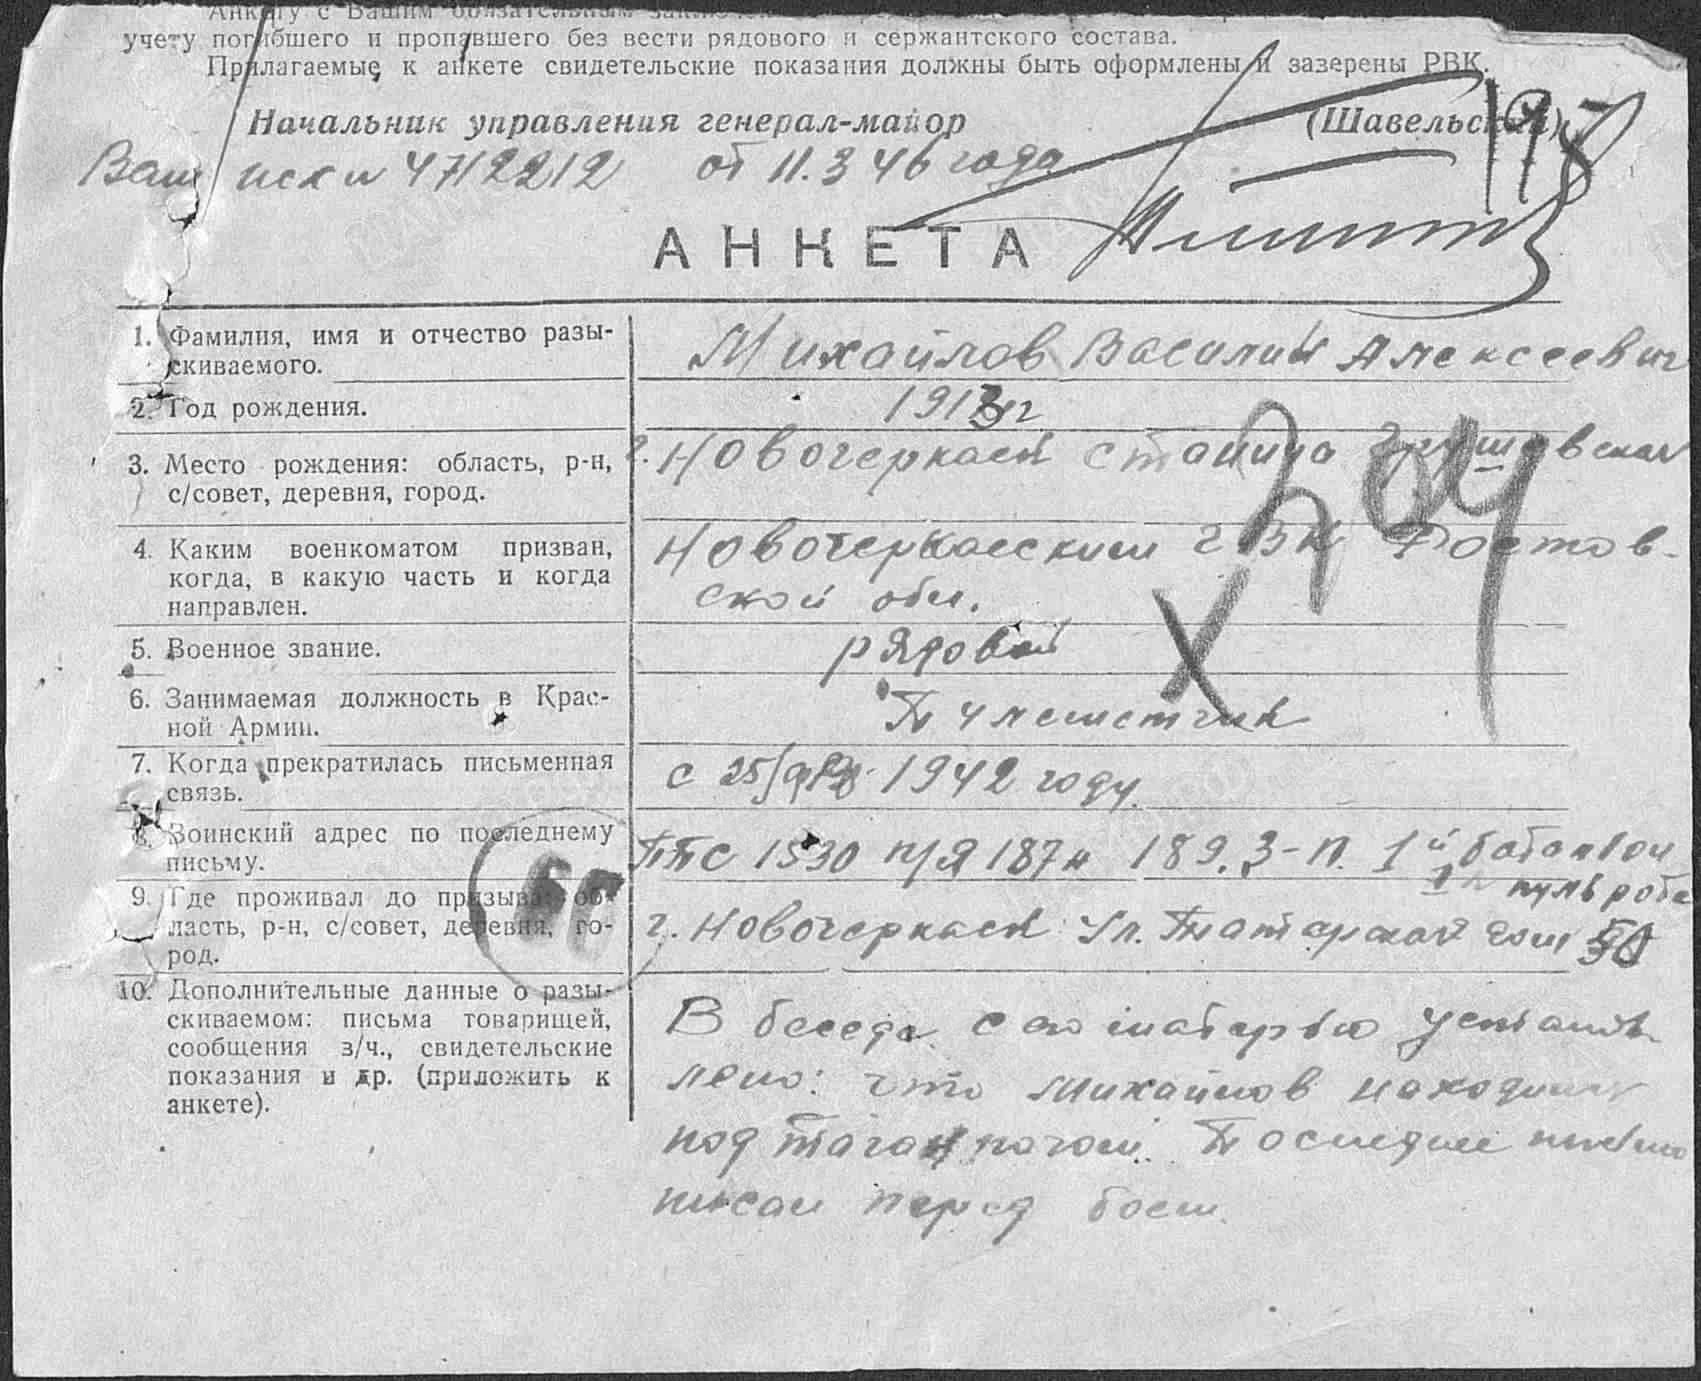 Анкету с Вашим обязательным
учету погибшего и пропавшего без вести рядового и сержантского состава.
Прилагаемые к анкете свидетельские показания должны быть оформлены и зазерены РВК.
Начальник управления генерал-майор (Шавельский)
Ваш исх н 4712212 от 11.3 46 года
АНКЕТА
1. Фамилия, имя и отчество разы-
скиваемого.
Михайлов Василий Алексеевич
2. Год рождения.
1913 г
3. Место рождения: область, р-н,
с/совет, деревня, город.
г. Новочеркаск станица Грушевская
4. Каким военкоматом призван,
когда, в какую часть и когда
направлен.
Новочеркасским ГВК Ростов-
ской обл.
5. Военное звание.
рядовой
6. Занимаемая должность в Крас-
ной Армии.
Пулеметчик
7. Когда прекратилась письменная
связь.
с 25/ 1942 году.
8. Воинский адрес по последнему
письму.
ППС 1530 п/я 187 н 189. З-П. 1й батальон
1 пуль рота
9. Где проживал до призыва: об-
ласть, р-н, с/совет, деревня, го-
род.
г. Новочеркаск Ул. Татарская дом 50
10. Дополнительные данные о разы-
скиваемом: письма товарищей,
сообщения з/ч., свидетельские
показания и др. (приложить к
анкете).
В беседе с его матерью установ
лено: что Михайлов находился
под Таганрогом. Последнее письмо
писал перед боем.
204